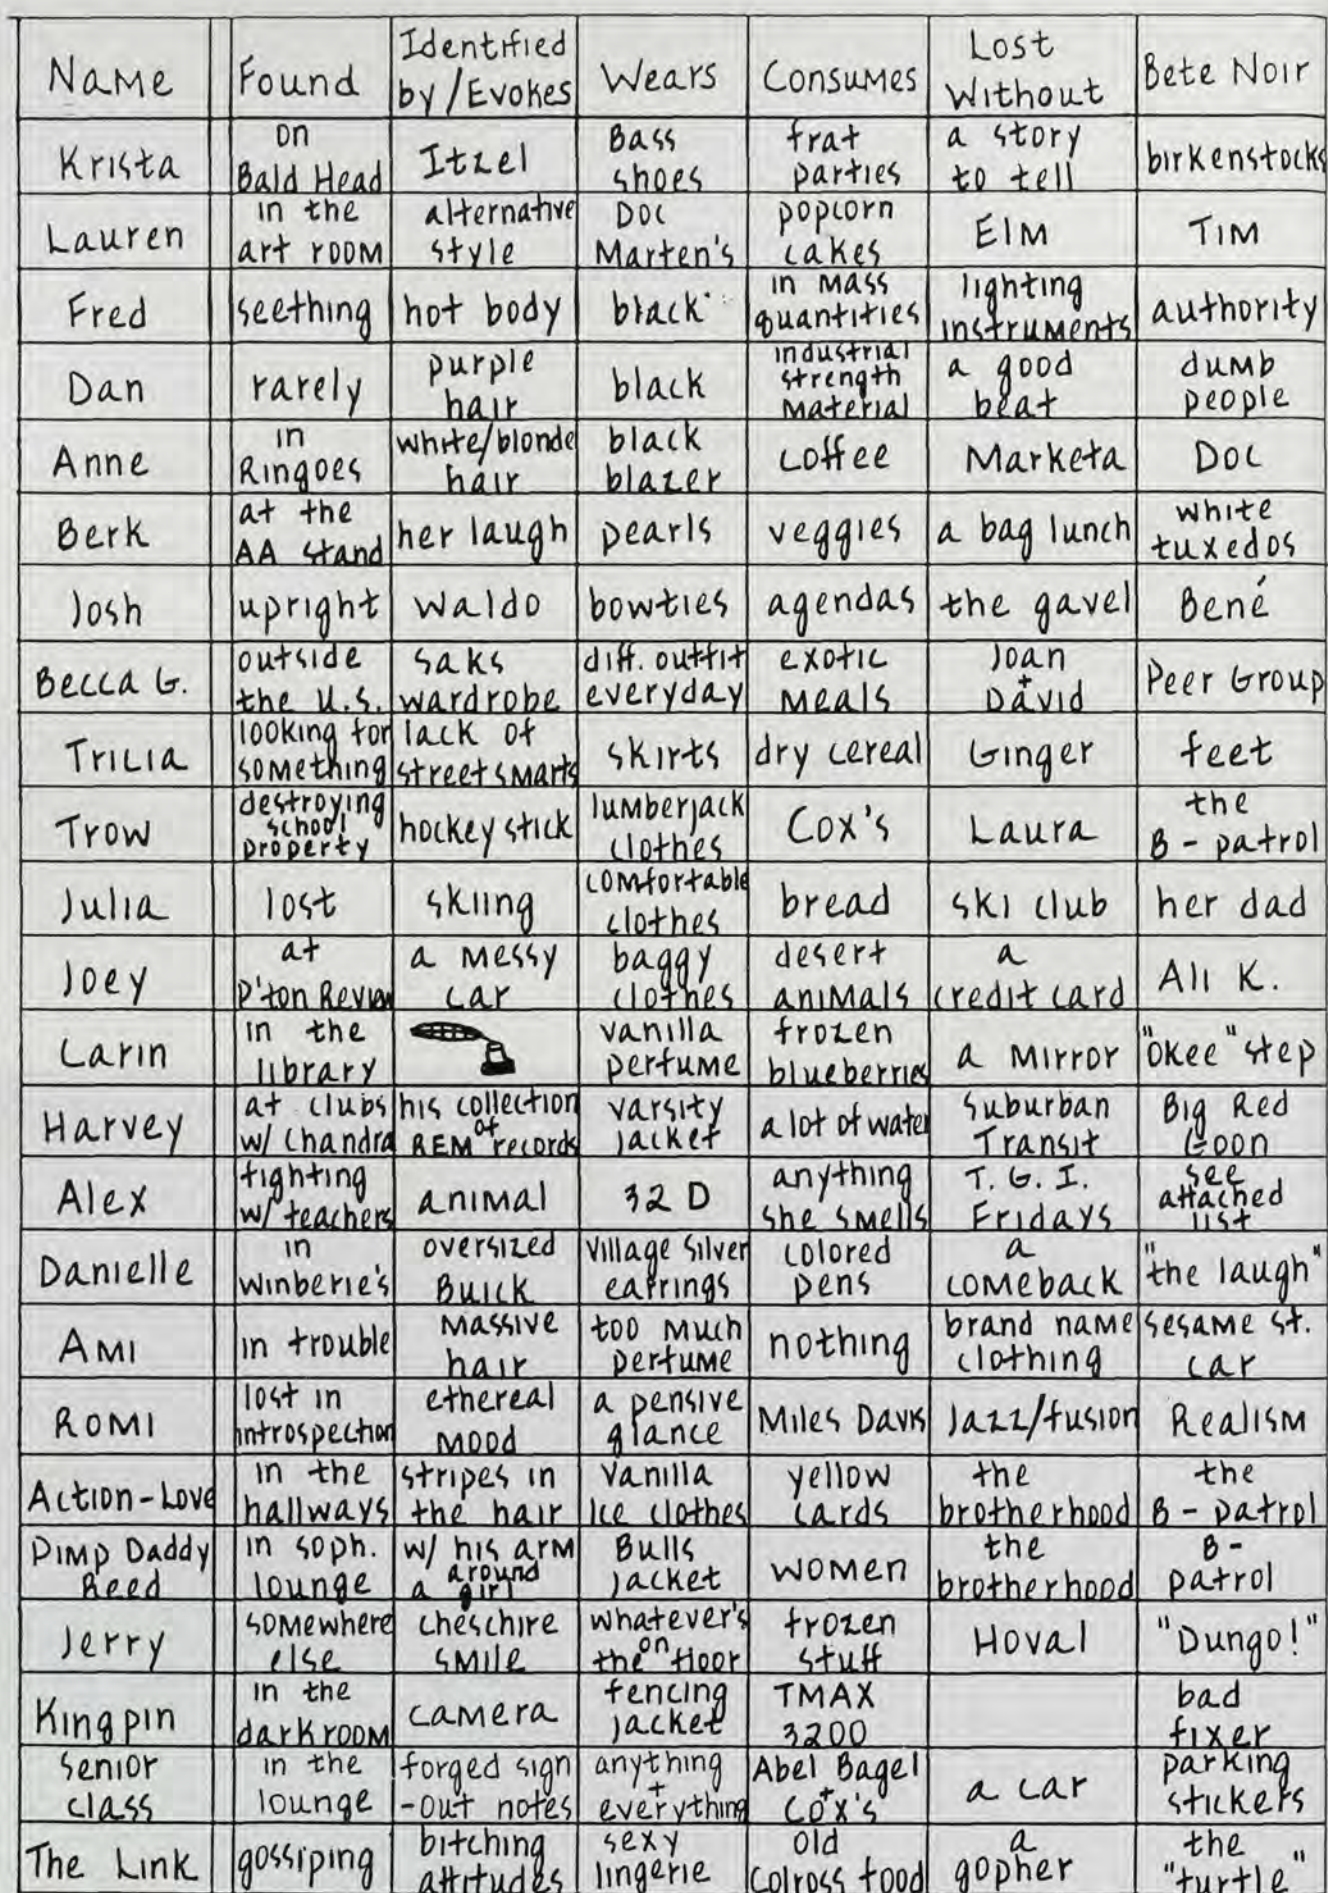 Name | Found | Identified by/Evokes | Wears | Consumes | Lost Without | Bete Noir
Krista | on Bald Head | Itzel | Bass shoes | frat parties | a story to tell | birkenstocks
Lauren | in the art room | alternative style | Doc Marten's | popcorn cakes | Elm | Tim
Fred | seething | hot body | black | in mass quantities | lighting instruments | authority
Dan | rarely | purple hair | black | industrial strength material | a good beat | dumb people
Anne | in Ringoes | white/blonde hair | black blazer | coffee | Marketa | Doc
Berk | at the AA stand | her laugh | pearls | veggies | a bag lunch | white tuxedos
Josh | upright | Waldo | bowties | agendas | the gavel | Bené
Becca G. | outside the U.S. | saks wardrobe | diff. outfit everyday | exotic meals | Joan + David | Peer Group
Tricia | looking for something | lack of street smarts | skirts | dry cereal | Ginger | feet
Trow | destroying school property | hockey stick | lumberjack clothes | Cox's | Laura | the B-patrol
Julia | lost | skiing | comfortable clothes | bread | ski club | her dad
Joey | at P'ton Review | a messy car | baggy clothes | desert animals | a credit card | Ali K.
Carin | in the library | vanilla perfume | frozen blueberries | a mirror | "okee" step
Harvey | at clubs w/ Chandra | his collection of REM records | varsity jacket | a lot of water | Suburban Transit | Big Red Goon
Alex | fighting w/ teachers | animal | 32 D | anything she smells | T. G. I. Fridays | see attached list
Danielle | in Winberie's | oversized Buick | Village Silver earrings | colored pens | a comeback | "the laugh"
Ami | in trouble | massive hair | too much perfume | nothing | brand name clothing | sesame st. car
Romi | lost in introspection | ethereal mood | a pensive glance | Miles Davis | Jazz/fusion | Realism
Action-Love | in the hallways | stripes in the hair | Vanilla Ice clothes | yellow cards | the brotherhood | the B-patrol
Pimp Daddy Reed | in soph. lounge | w/ his arm around a girl | Bulls jacket | women | the brotherhood | B-patrol
Jerry | somewhere else | cheschire smile | whatever's on the floor | frozen stuff | Hoval | "Dungo!"
Kingpin | in the darkroom | camera | fencing jacket | TMAX 3200 | | bad fixer
Senior class | in the lounge | forged sign-out notes | anything + everything | Abel Bagel + Cox's | a car | parking stickers
The Link | gossiping | bitching attitudes | sexy lingerie | old Colross food | a gopher | the "turtle"